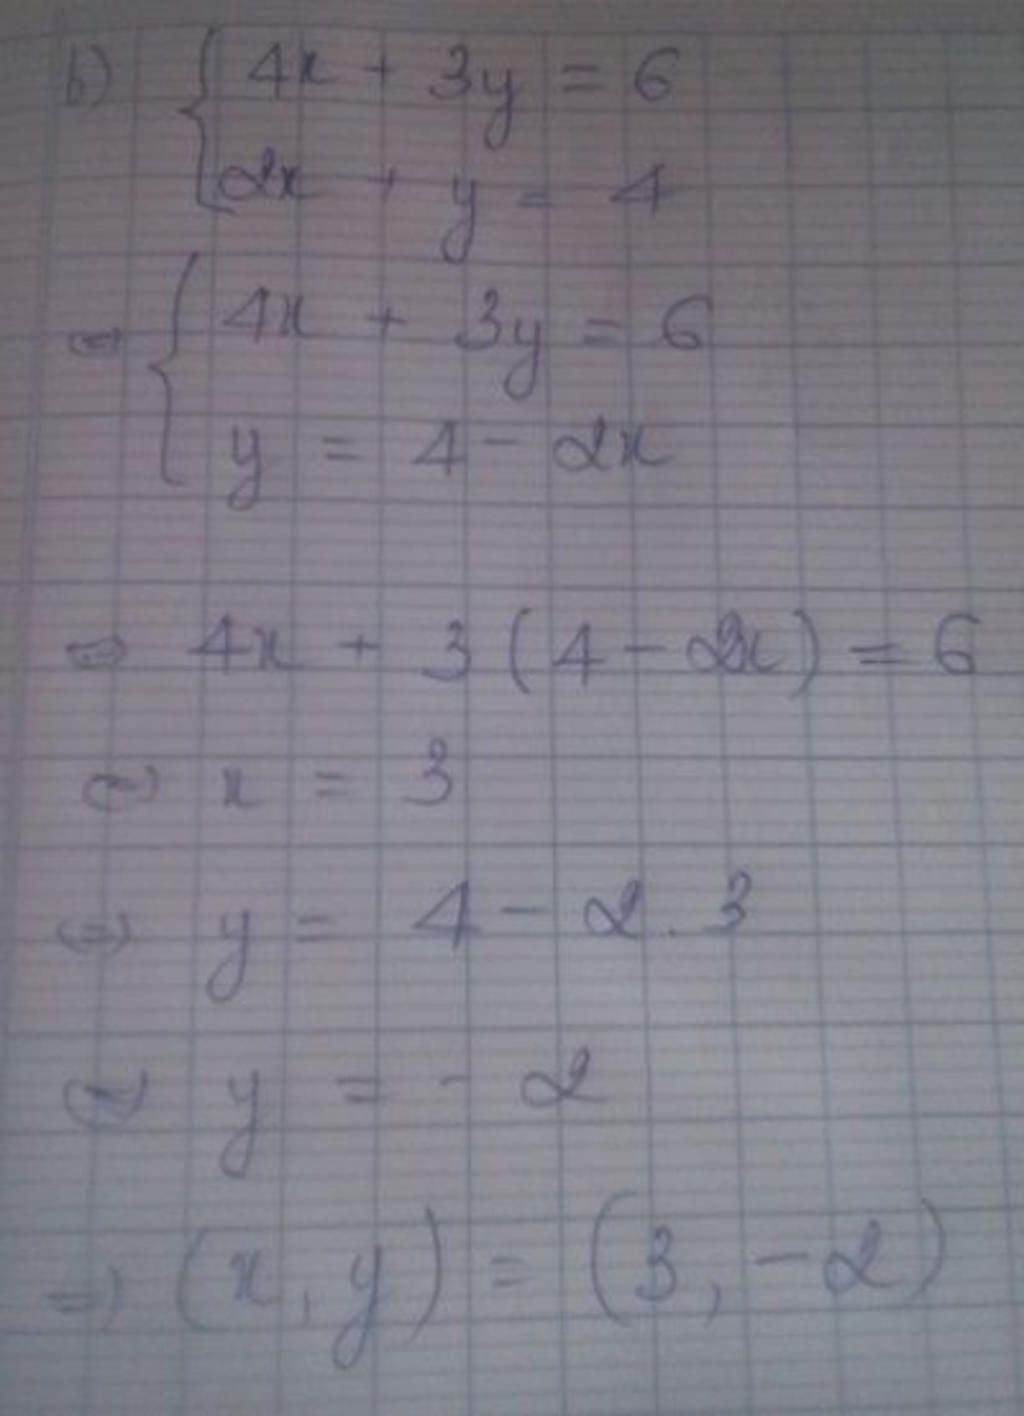 b) { 4x + 3y = 6
2x + y = 4
⇔ { 4x + 3y = 6
y = 4 - 2x
⇔ 4x + 3 ( 4 - 2x ) = 6
⇔ x = 3
⇔ y = 4 - 2 . 3
⇔ y = - 2
⇒ ( x , y ) = ( 3 , - 2 )